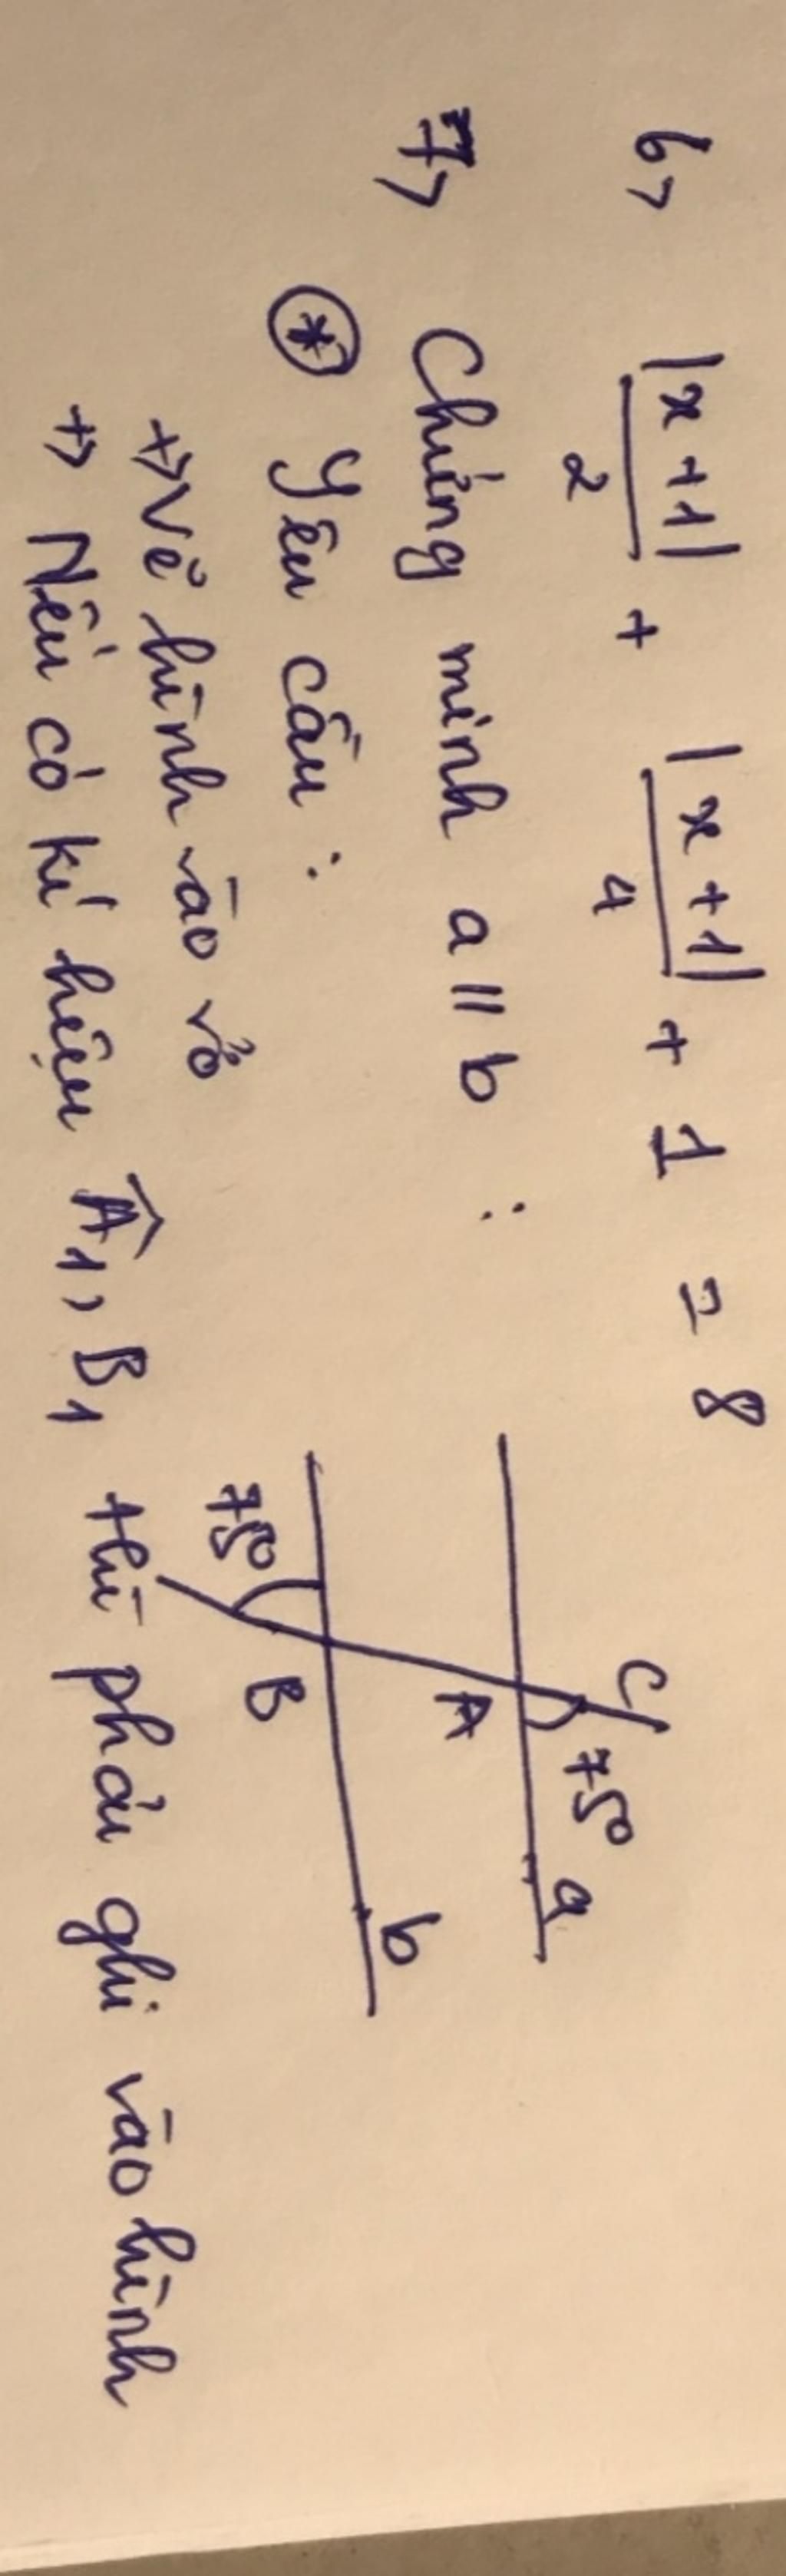 6> |x+1|/2 + |x+1|/4 + 1 = 8
7> Chứng minh a // b :
c
75°
a
A
B
75°
b
* Yêu cầu :
+> Vẽ hình vào vở
+> Nếu có kí hiệu Â1, B1 thì phải ghi vào hình